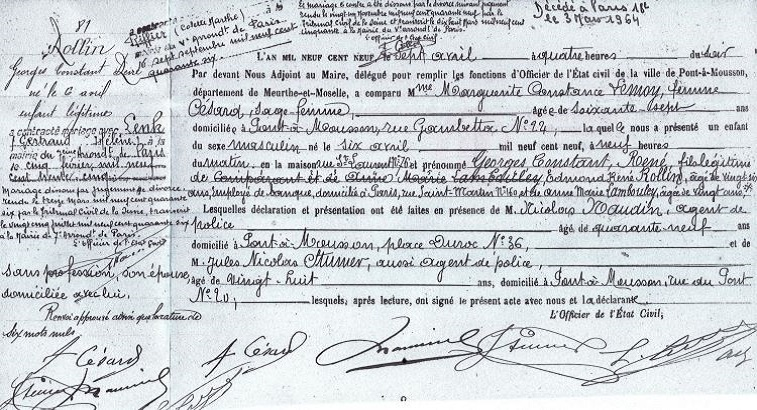 81
Rollin
Georges Constant René
né le 6 avril
enfant légitime
a contracté mariage avec Lenk
(Gertraud Helen) à la
mairie du arrondt de Paris
le cinq février mil neuf
cent trente cinq
Mariage dissous par jugement de divorce
rendu le treize mars mil neuf cent quarante
six par le Tribunal Civil de la Seine, transcrit
le vingt cinq juillet mil neuf cent quarante six
à la Mairie du arrondt de Paris.
L'officier de l'Etat Civil
sans profession, son épouse
domiciliée avec lui,
Renvoi approuvé ainsi que la rature de
six mots nuls
A Césard
(Colette Marthe) à la
mairie du Vᵉ arrondt de Paris
16 septembre mil neuf cent
quarante six
le mariage ci contre a été dissous par le divorce suivant jugement
rendu le vingt novembre mil neuf cent quarante neuf par le
Tribunal Civil de la Seine et transcrit le dix huit mars mil neuf cent
cinquante à la Mairie du Vᵉ arrondt de Paris.
L'officier de l'Etat civil
Décédé à Paris 18e
le 3 Mars 1964
L'AN MIL NEUF CENT NEUF, le sept avril à quatre heures du soir
Par devant Nous Adjoint au Maire, délégué pour remplir les fonctions d'Officier de l'État civil de la ville de Pont-à-Mousson,
département de Meurthe-et-Moselle, a comparu Mme Marguerite Constance Lemoy, femme
Césard, Sage-femme, âgée de soixante sept ans
domiciliée à Pont-à-Mousson, rue Gambetta No 24, laquelle nous a présenté un enfant
du sexe masculin né le six avril mil neuf cent neuf, à neuf heures
du matin, en la maison rue St Laurent No 76 et prénommé Georges Constant, René, fils légitime
de comparant et de Anne Marie Lambouley Edmond René Rollin, âgé de vingt six
ans, employé de banque, domicilié à Paris, rue Saint-Martin No 160 et de Anne Marie Lambouley, âgée de vingt ans
Lesquelles déclaration et présentation ont été faites en présence de M. Nicolas Naudin, agent de
police âgé de quarante neuf ans
domicilié à Pont-à-Mousson, place Duroc No 36, et de
M. Jules Nicolas Sturner, aussi agent de police,
âgé de vingt-huit ans, domicilié à Pont-à-Mousson, rue du Pont
No 20, lesquels, après lecture, ont signé le présent acte avec nous et la déclarante
L'Officier de l'État Civil,
A Césard